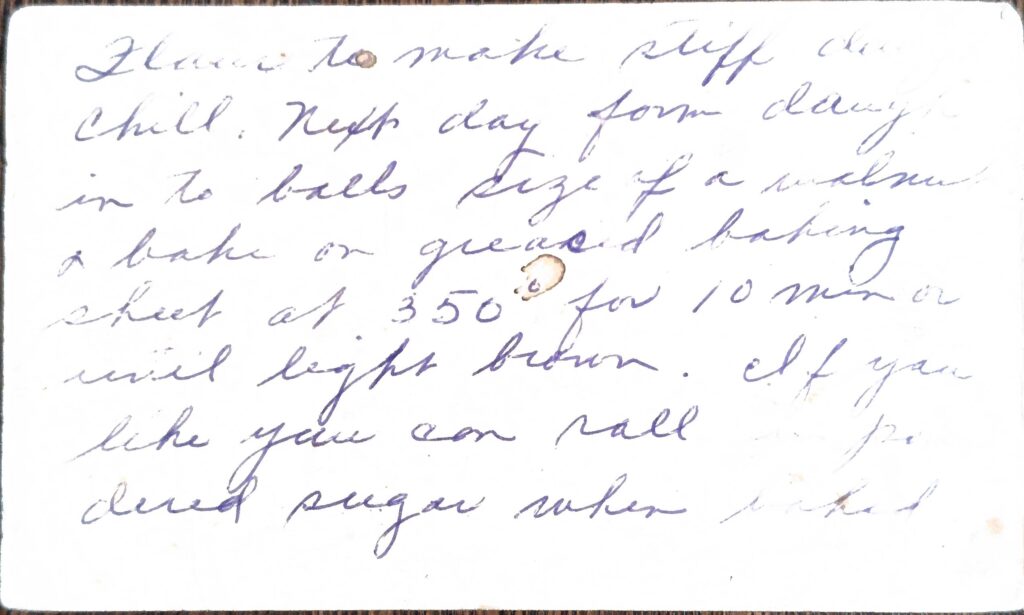 Flour to make stiff
Chill. Next day form dough
in to balls size of a walnut
& bake on greased baking
sheet at 350° for 10 min or
until light brown. If you
like you can roll in pow
dered sugar when baked